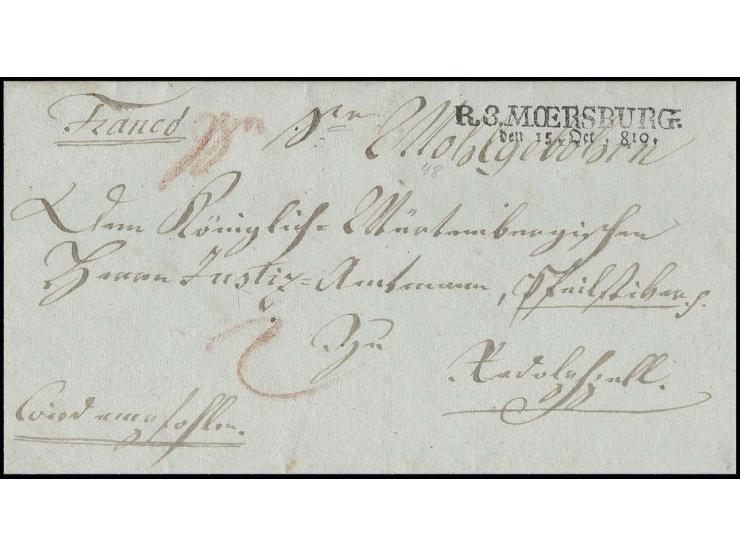 Francò
R.3. MŒRSBURG.
den 15. Oct. 810.
Sr Wohlgebohrn
48
Dem Königlich-Würtembergischen
Herrn Justiz-Amtmann,
Zu
Radolphzell.
Wird empfohlen.